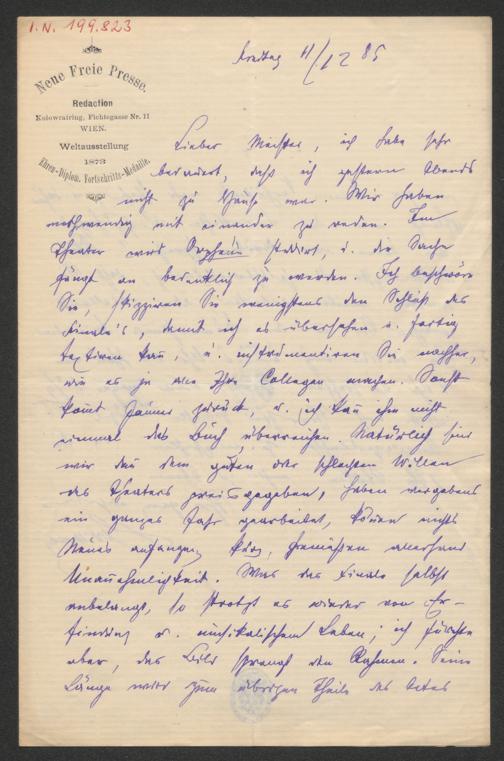 I.N. 199.823
Neue Freie Presse.
Redaction
Kolowratring, Fichtegasse Nr. 11
WIEN.
Weltausstellung
1873
Ehren-Diplom. Fortschritts-Medaille.
Freitag 11/12 85
Lieber Meister, ich habe sehr
bedauert, daß ich gestern Abends
nicht zu Hause war. Wir haben
nothwendig mit einander zu reden. Im
Theater wird studirt, u. die Sache
fängt an bedenklich zu werden. Ich beschwöre
Sie, skizziren Sie wenigstens den Schluß des
Finale's, damit ich es übersehen u. fertig
textiren kann, u. instrumentiren Sie nachher,
wie es ja alle Ihre Collegen machen. Sonst
kommt Jauner zurück, u. ich kann ihm nicht
einmal das Buch überreichen. Natürlich sind
wir dann dem guten oder schlechten Willen
des Theaters preisgegeben, haben vergebens
ein ganzes Jahr gearbeitet, können nichts
Neues anfangen, kurz, genießen allerhand
Unannehmlichkeit. Was das Finale selbst
anbelangt, so strotzt es wieder von Er-
findung u. musikalischem Leben; ich fürchte
aber, das Bild sprengt den Rahmen. Seine
Länge wird zum übrigen Theile des Actes